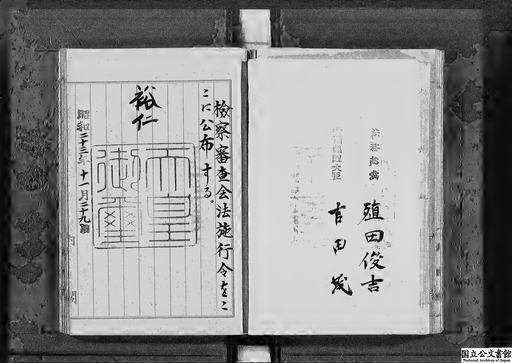 検察審査会法施行令をこ
こに公布する。
裕仁
天皇
御璽
昭和二十三年十一月二十九日
内閣
法務総裁
殖田俊吉
内閣総理大臣
吉田茂
国立公文書館
National Archives of Japan